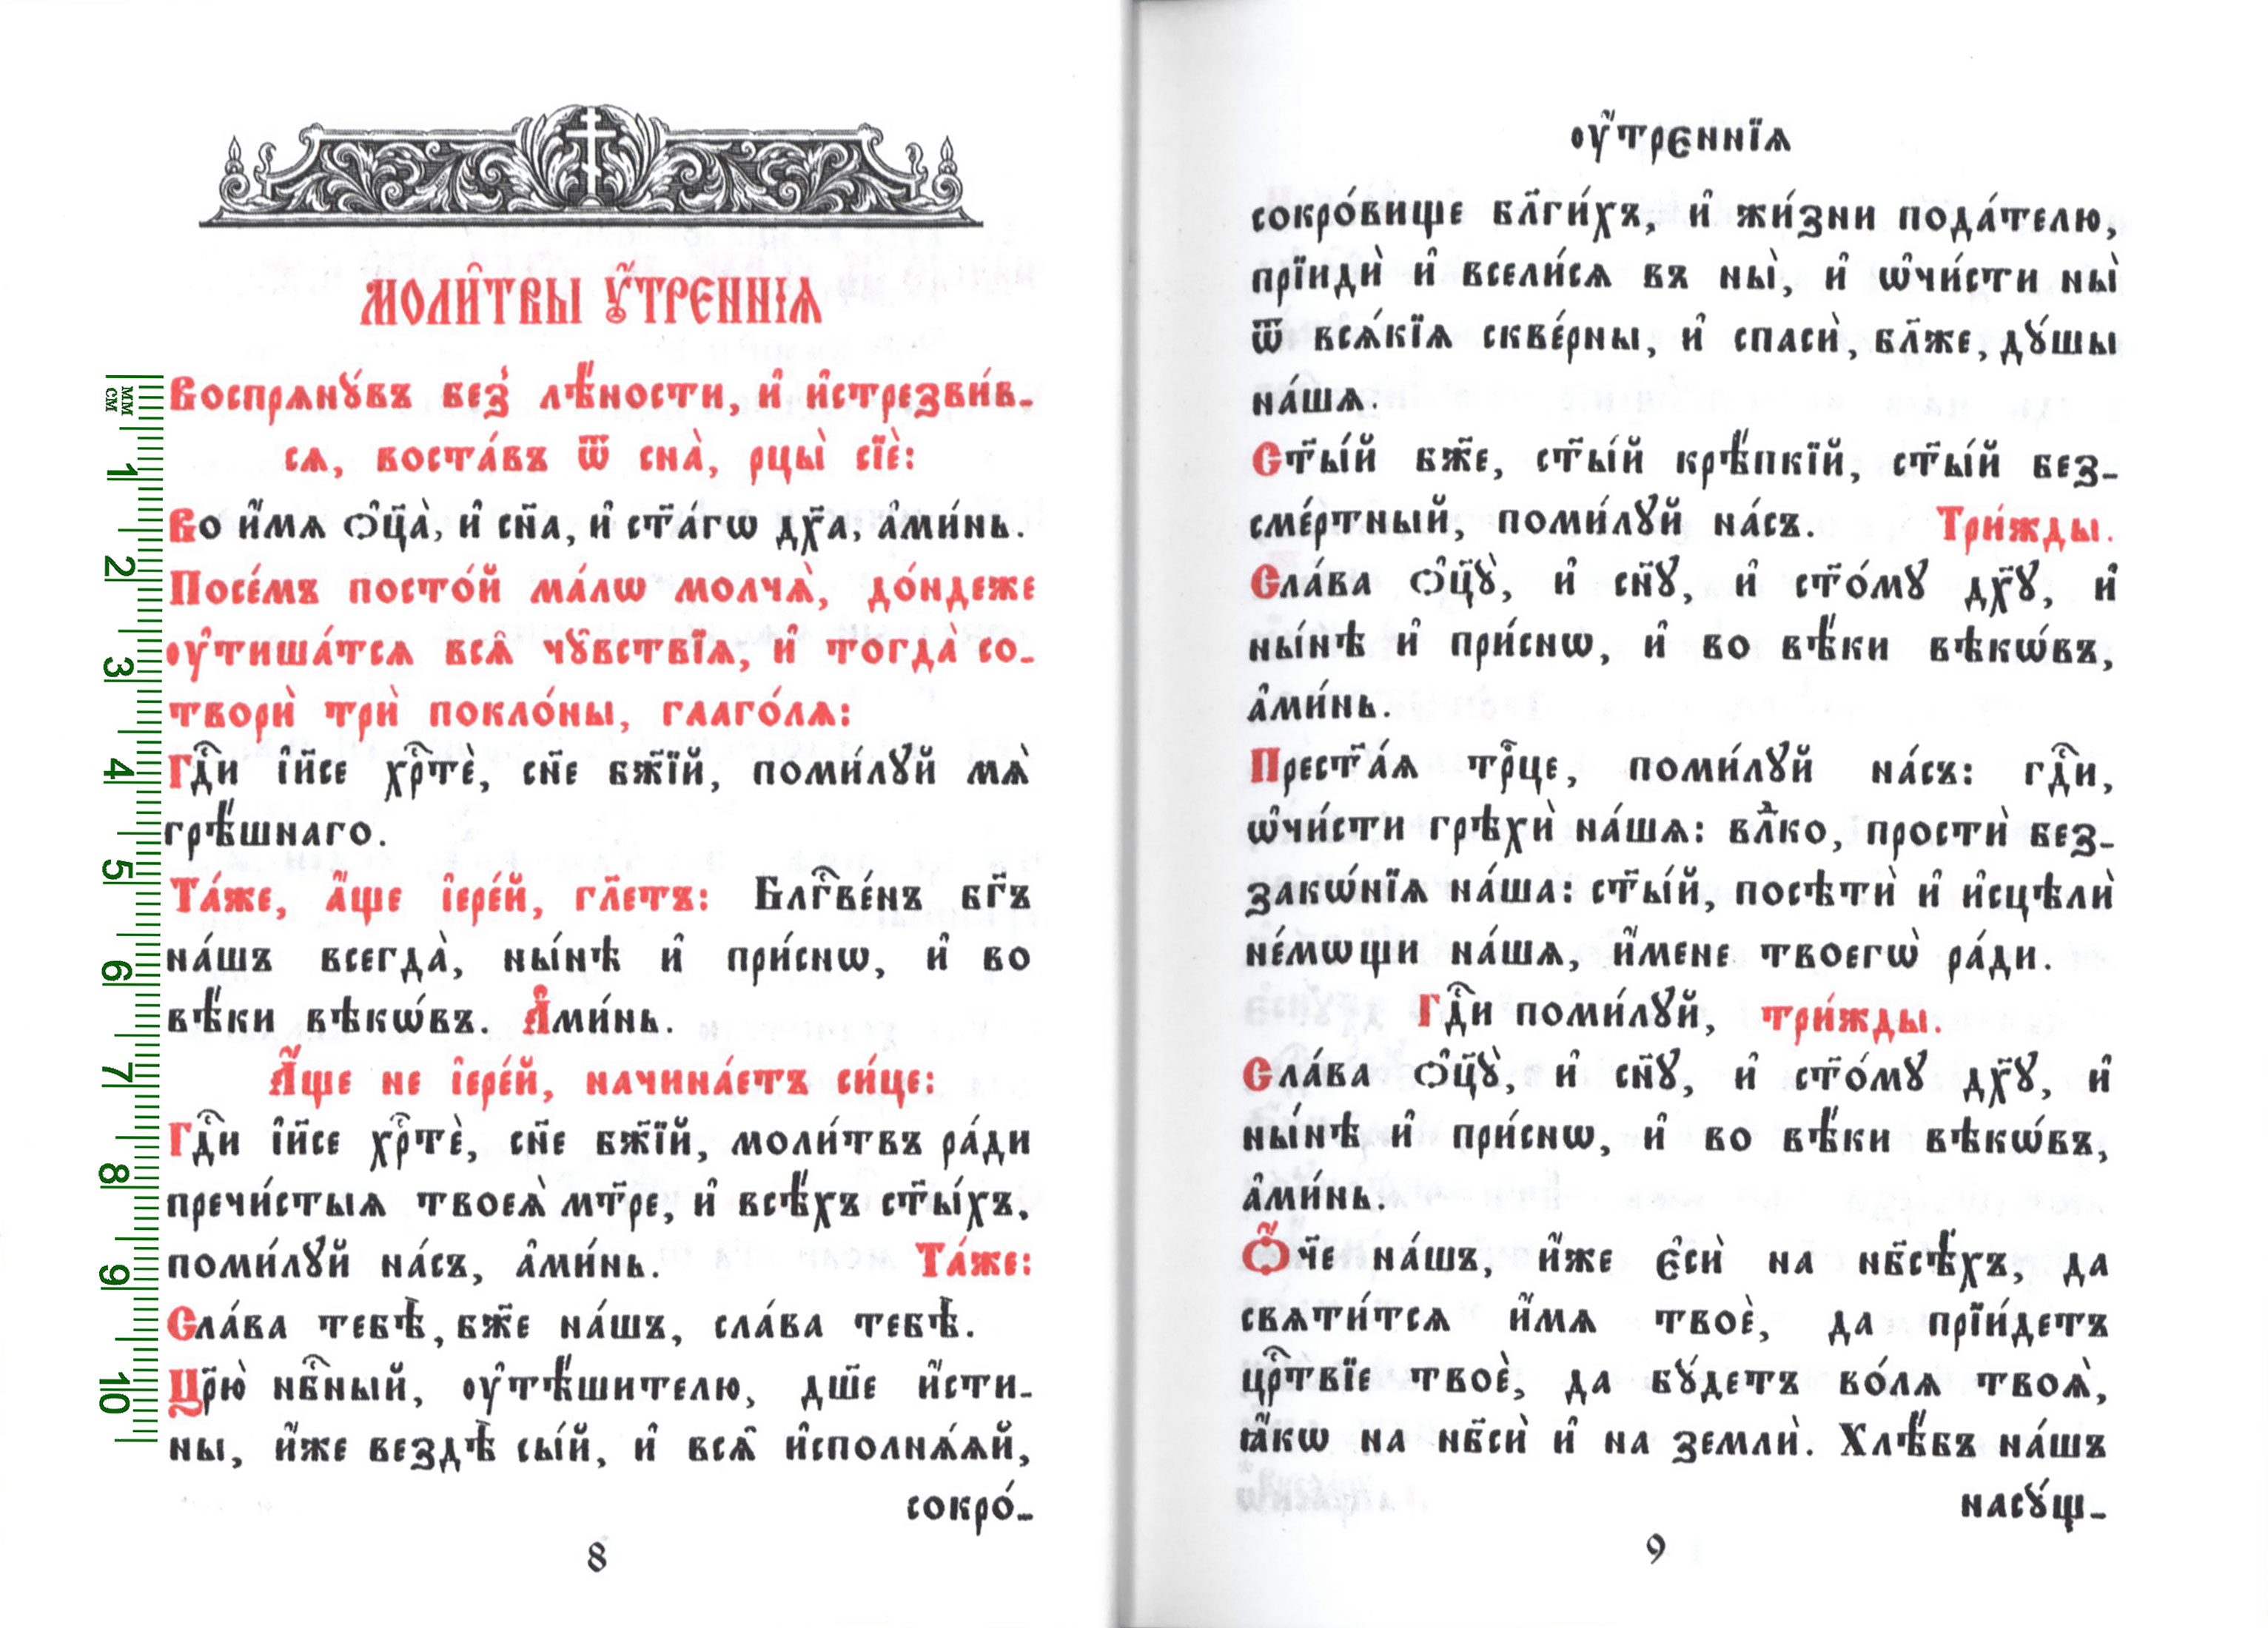 МОЛИ̑ТВЫ ᲂУ҆́ТРЕННІѦ
Воспрѧнꙋ́въ без̾ лѣ́ности, и҆ и҆стрезви́в-
сѧ, воста́въ ѿ сна̀, рцы̀ сїѐ:
Во и҆́мѧ ѻ҆ц҃а̀, и҆ сн҃а, и҆ ст҃а́гѡ дх҃а, а҆ми́нь.
Посе́мъ посто́й ма́лѡ молчѧ̀, до́ндеже
ᲂу҆тиша́тсѧ всѧ̑ чꙋ̑вствїѧ, и҆ тогда̀ со-
творѝ трѝ покло́ны, глаго́лѧ:
Гдⷭ҇и і҆и҃се хрⷭ҇тѐ, сн҃е бж҃їй, поми́лꙋй мѧ̀
грѣ́шнаго.
Та́же, а҆́ще і҆ере́й, гл҃етъ: Блгⷭ҇ве́нъ бг҃ъ
на́шъ всегда̀, ны́нѣ и҆ при́снѡ, и҆ во
вѣ́ки вѣкѡ́въ. А҆ми́нь.
А҆́ще не і҆ере́й, начина́етъ си́це:
Гдⷭ҇и і҆и҃се хрⷭ҇тѐ, сн҃е бж҃їй, моли́твъ ра́ди
пречи́стыѧ твоеѧ̀ мт҃ре, и҆ всѣ́хъ ст҃ы́хъ,
поми́лꙋй на́съ, а҆ми́нь. Та́же:
Сла́ва тебѣ̀, бж҃е на́шъ, сла́ва тебѣ̀.
Цр҃ю̀ нбⷭ҇ный, ᲂу҆тѣ́шителю, дш҃е и҆́сти-
ны, и҆́же вездѣ̀ сы́й, и҆ всѧ̑ и҆сполнѧ́ѧй,
сокро́-
8
ᲂу҆́трєннїѧ
сокро́вище бл҃ги́хъ, и҆ жи́зни пода́телю,
прїидѝ и҆ всели́сѧ въ ны̀, и҆ ѡ҆чи́сти ны̀
ѿ всѧ́кїѧ скве́рны, и҆ спасѝ, бл҃же, дꙋ́шы
на́шѧ.
Ст҃ы́й бж҃е, ст҃ы́й крѣ́пкїй, ст҃ы́й без-
сме́ртный, поми́лꙋй на́съ. Три́жды.
Сла́ва ѻ҆ц҃ꙋ̀, и҆ сн҃ꙋ, и҆ ст҃о́мꙋ дх҃ꙋ, и҆
ны́нѣ и҆ при́снѡ, и҆ во вѣ́ки вѣкѡ́въ,
а҆ми́нь.
Прест҃а́ѧ трⷪ҇це, поми́лꙋй на́съ: гдⷭ҇и,
ѡ҆чи́сти грѣхѝ на́шѧ: влⷣко, простѝ без-
закѡ́нїѧ на́ша: ст҃ы́й, посѣтѝ и҆ и҆сцѣлѝ
не́мѡщи на́шѧ, и҆́мене твоегѡ̀ ра́ди.
Гдⷭ҇и поми́лꙋй, три́жды.
Сла́ва ѻ҆ц҃ꙋ̀, и҆ сн҃ꙋ, и҆ ст҃о́мꙋ дх҃ꙋ, и҆
ны́нѣ и҆ при́снѡ, и҆ во вѣ́ки вѣкѡ́въ,
а҆ми́нь.
Ѻ҆́ч҃е на́шъ, и҆́же є҆сѝ на нб҃сѣ́хъ, да
свѧти́тсѧ и҆́мѧ твоѐ, да прїи́детъ
црⷭ҇твїе твоѐ, да бꙋ́детъ во́лѧ твоѧ̀,
ꙗ҆́кѡ на нб҃сѝ и҆ на землѝ. Хлѣ́бъ на́шъ
насꙋ́щ-
9
мм
см
1
2
3
4
5
6
7
8
9
10